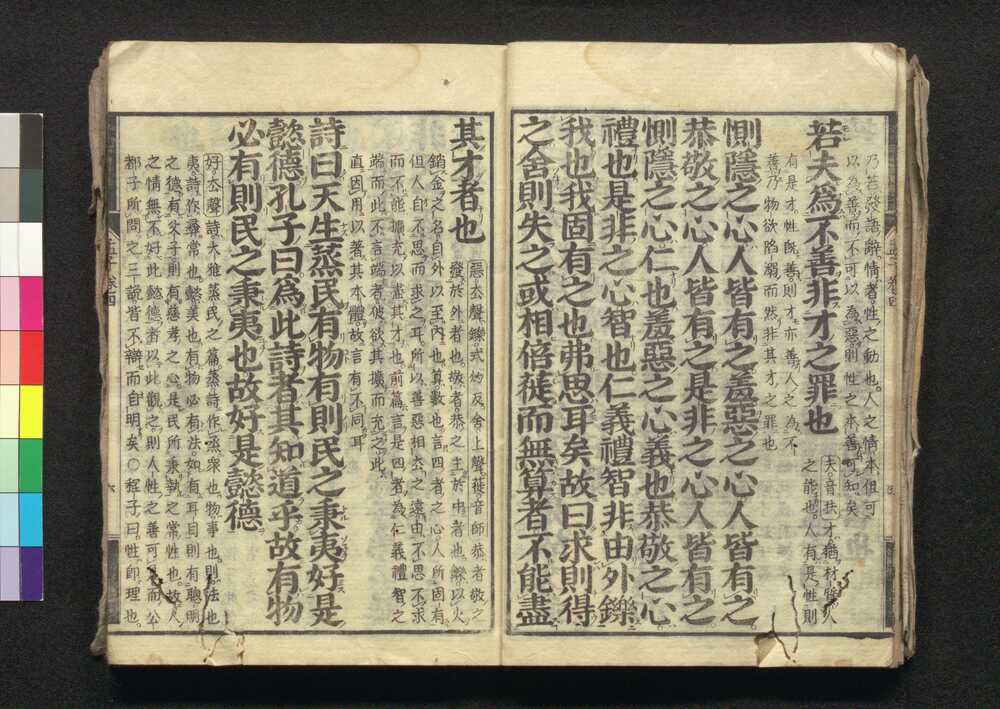 乃若發語辭情者性之動也人之情本但可
以為善而不可以為惡則性之本善可知矣
若夫爲不善非才之罪也
夫音扶才猶材質人
之能也人有是性則
有是才性既善則才亦善人之為不
善乃物欲陷溺而然非其才之罪也
惻隱之心人皆有之羞惡之心人皆有之
恭敬之心人皆有之是非之心人皆有之
惻隱之心仁也羞惡之心義也恭敬之心
禮也是非之心智也仁義禮智非由外鑠
我也我固有之也弗思耳矣故曰求則得
之舍則失之或相倍蓰而無算者不能盡
其才者也
惡去聲鑠式灼反舍上聲蓰音師恭者敬之
發於外者也敬者恭之主於中者也鑠以火
銷金之名自外以至內也算數也言四者之心人所固有
但人自不思而求之耳所以善惡相去之遠由不思不求
而不能擴充以盡其才也前篇言是四者為仁義禮智之
端而此不言端者彼欲其擴而充之此
直因用以著其本體故言有不同耳
詩曰天生蒸民有物有則民之秉夷好是
懿德孔子曰爲此詩者其知道乎故有物
必有則民之秉夷也故好是懿德
好去聲詩大雅蒸民之篇蒸詩作烝衆也物事也則法也
夷詩作彝常也懿美也有物必有法如有耳目則有聰明
之德有父子則有慈孝之心是民所秉執之常性也故人
之情無不好此懿德者以此觀之則人性之善可見而公
都子所問之三說皆不辯而自明矣○程子曰性即理也
六